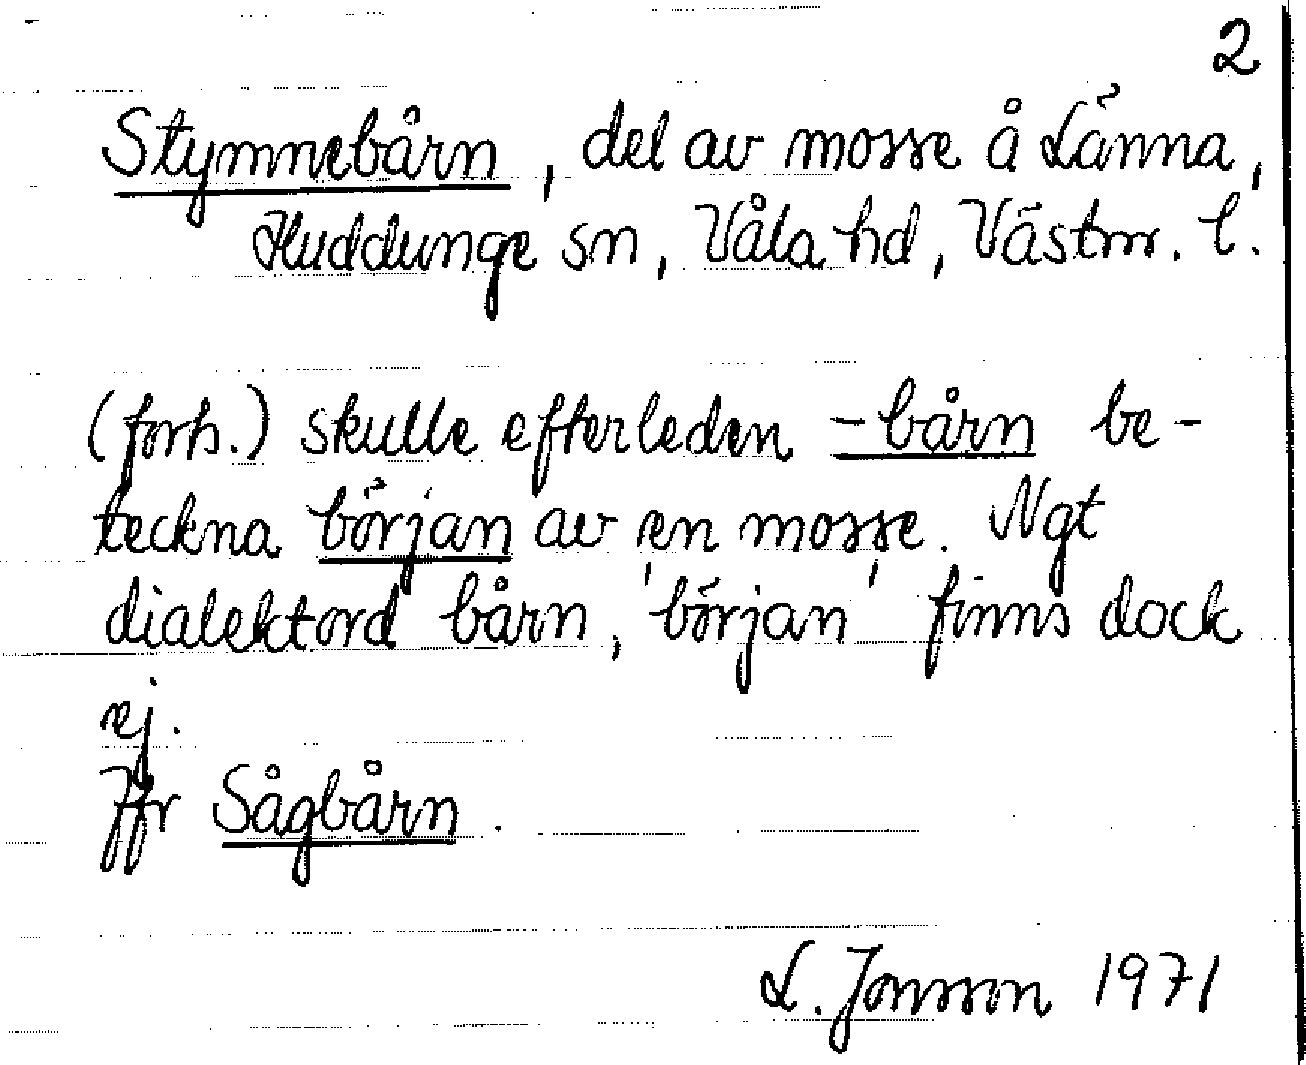 2
Stymnebårn, del av mosse å Länna,
Huddunge sn, Våla hd, Västm. l.
(forts.) skulle efterleden -bårn be-
teckna början av en mosse. Ngt
dialektord bårn, 'början' finns dock
ej.
Jfr Sågbårn.
L. Jonsson 1971